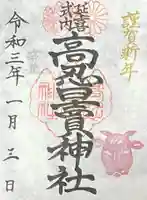 謹賀新年
延喜式内
高忍日賣神社
令和三年一月三日